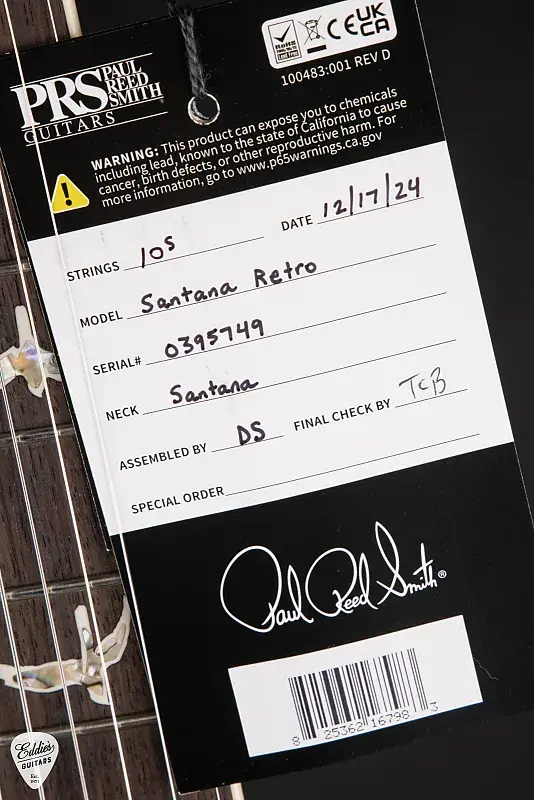 RoHS
Lead Free
CE UK CA
100483:001 REV D
PRS PAUL REED SMITH
GUITARS
WARNING: This product can expose you to chemicals
including lead, known to the state of California to cause
cancer, birth defects, or other reproductive harm. For
more information, go to www.p65warnings.ca.gov
STRINGS 10s DATE 12/17/24
MODEL Santana Retro
SERIAL# 0395749
NECK Santana
ASSEMBLED BY DS FINAL CHECK BY TCB
SPECIAL ORDER
Paul Reed Smith®
8 25362 16798 3
Eddie's
GUITARS